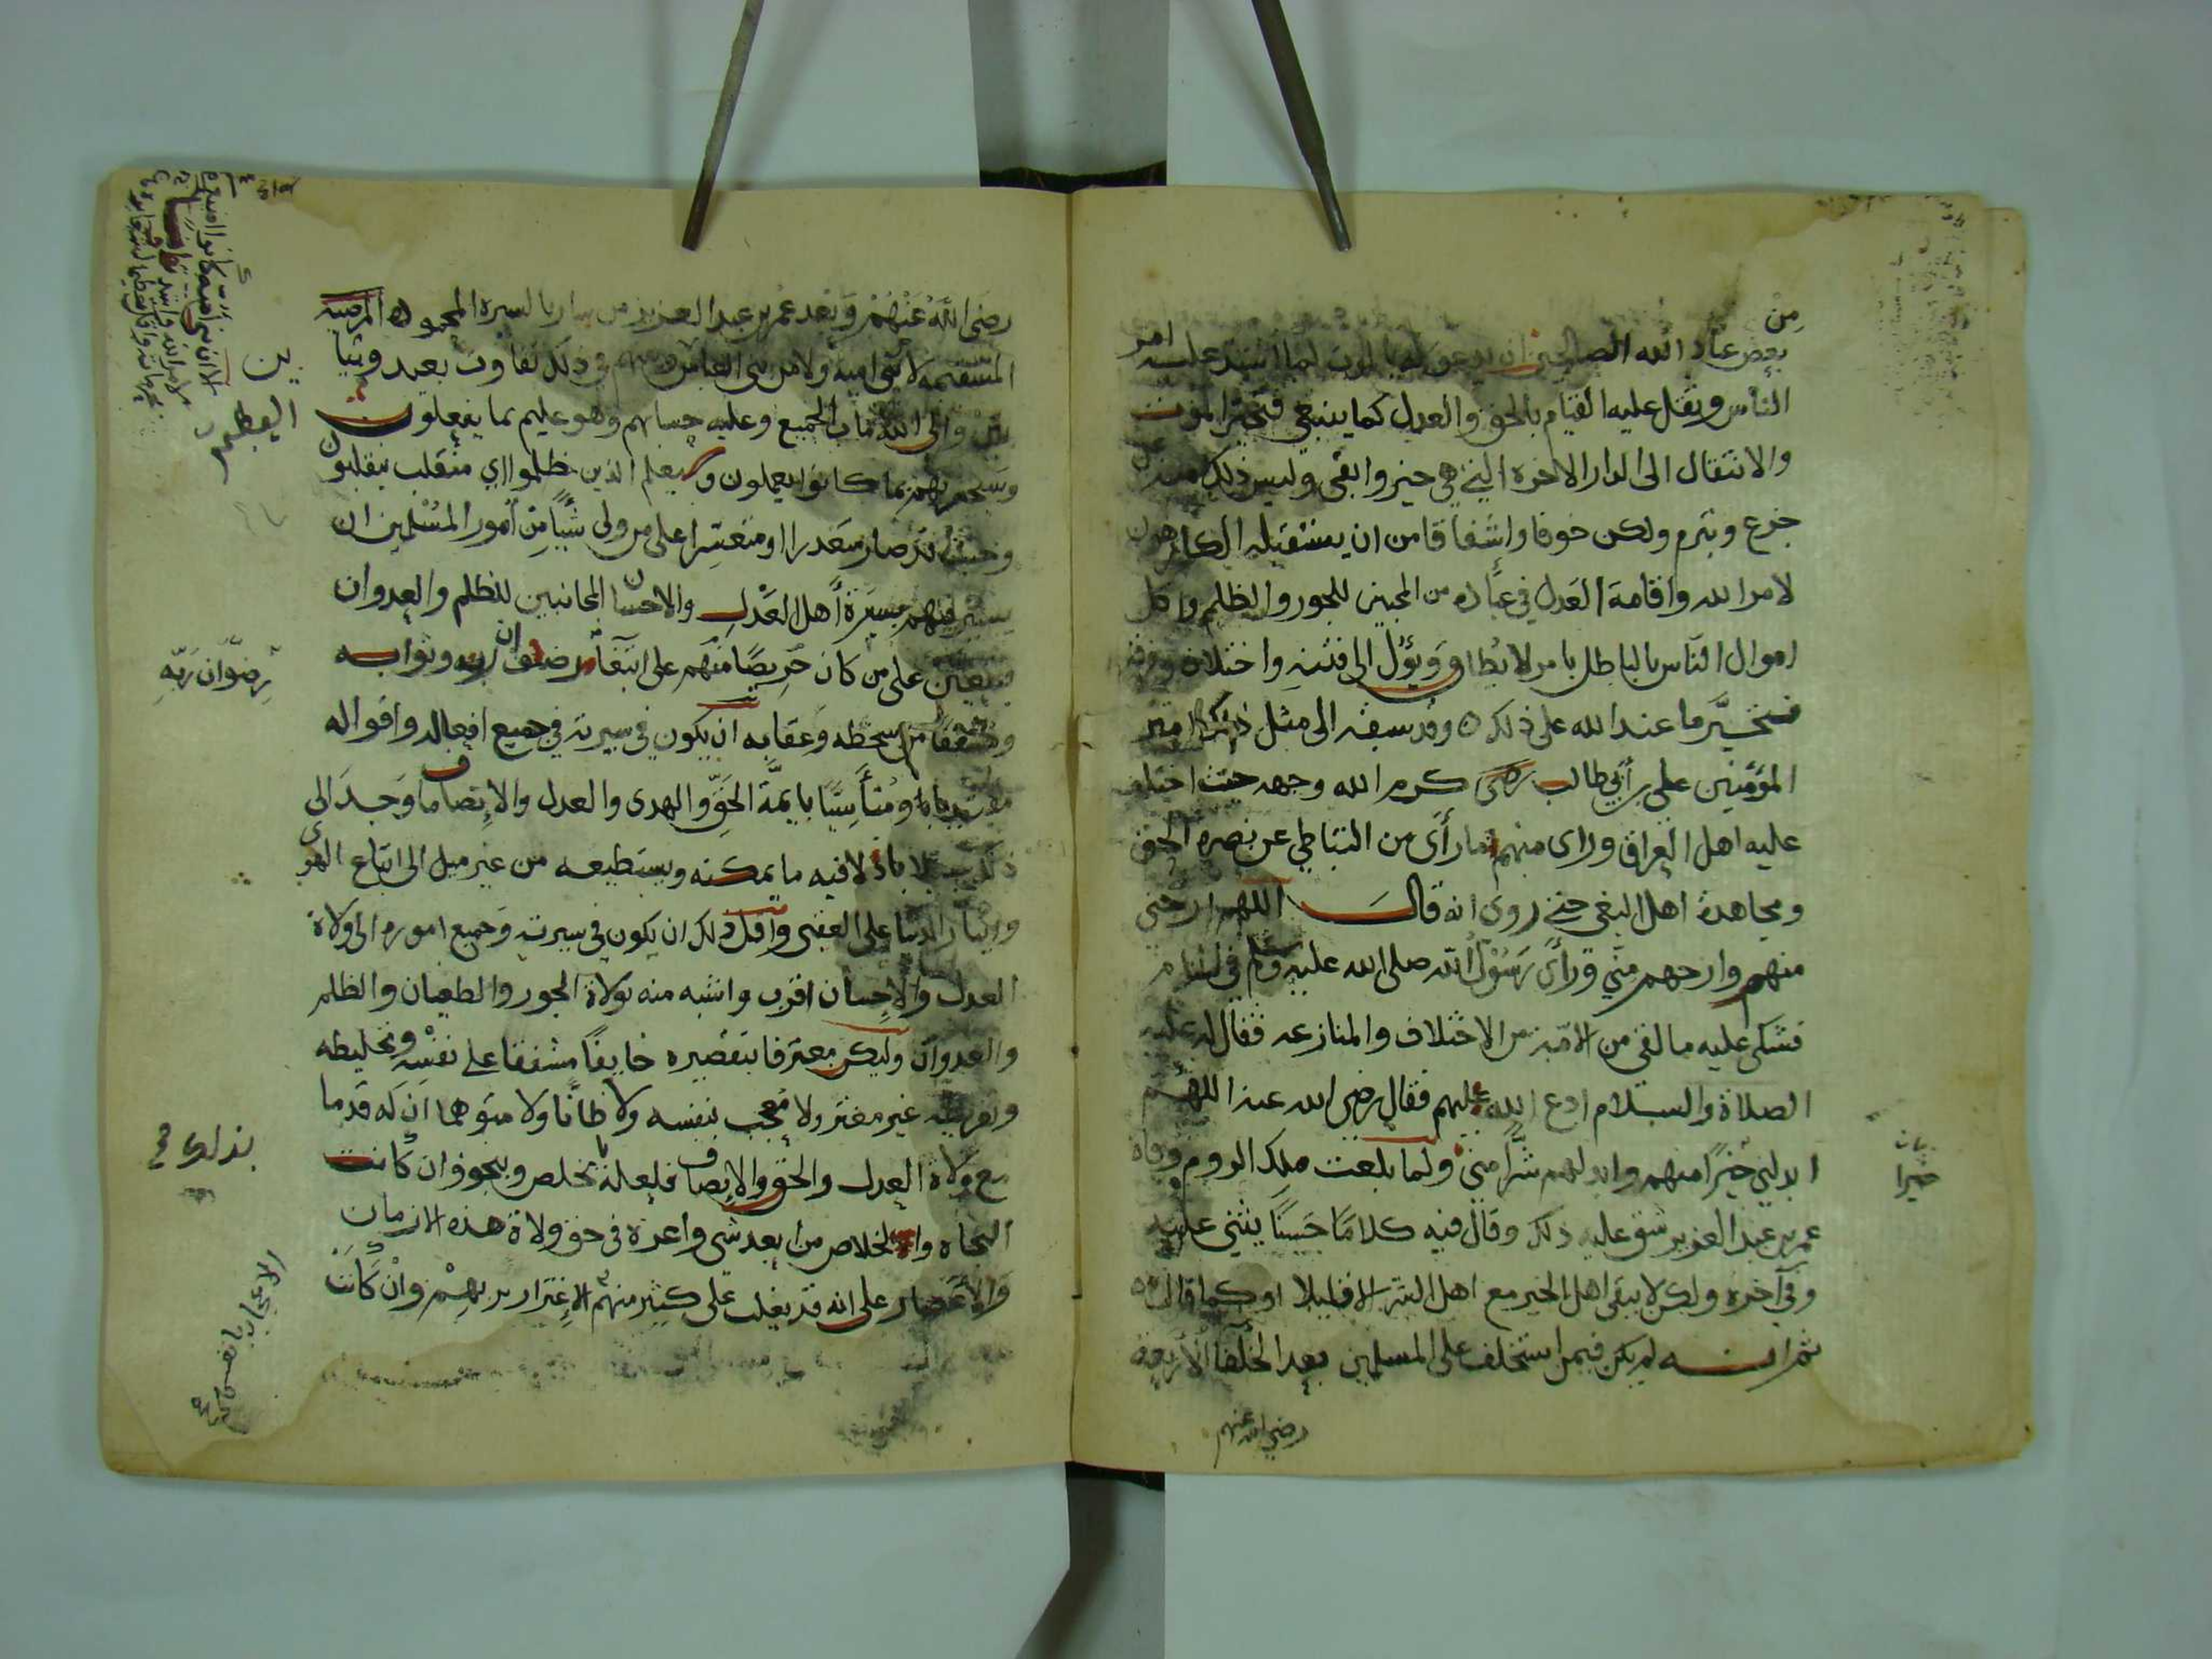 من
بعض عباد الله الصالحين ان يدعو له بالموت لما اشتد عليه امر
الناس وثقل عليه القيام بالحق والعدل كما ينبغي فتخير الموت
والانتقال الى الدار الاخرة التي هي خير وابقى وليس ذلك منه عن
جزع وتبرم ولكن خوفا واشفاقا من ان يستقبله الكارهون
لامر الله واقامة العدل في عباده من المحبين للجور والظلم واكل
اموال الناس بالباطل بامر لا يطاق ويؤل الى فتنة واختلاف وفرقة
فتخير ما عند الله على ذلك ٥ وقد سبقه الى مثل ذلك امير
المؤمنين علي بن أبي طالب كرم الله وجهه حيث اختلف
عليه اهل العراق وراى منهم ما رأى من التباطي عن نصرة الحق
ومجاهدة اهل البغي حتى روى انه قال اللهم ارحني
منهم وارحهم مني ورأى رسول الله صلى الله عليه وسلم في المنام
فشكى عليه ما لقى من الامة من الاختلاف والمنازعه فقال له عليه
الصلاة والسلام ادع الله عليهم فقال رضى الله عنه اللهم
ابدلني خيرا منهم وابدلهم شرا مني ولما بلغت ملك الروم وفاة
عمر بن عبد العزيز شق عليه ذلك وقال فيه كلاما حسنا يثني عليه
وفي آخره ولكن لا يبقى اهل الخير مع اهل الشر الا قليلا او كما قال ٥
ثم انه لم يكن فيمن استخلف على المسلمين بعد الخلفا الأربعة
رضي الله عنهم
خيرا
رضي الله عنهم وبعد عمر بن عبد العزيز من سار بالسيرة المحموده المرضيه
المستقيمة لا بني اميه ولا من بني العباس وبينهم في ذلك تفاوت بعيد وتباين
بين والى الله مآب الجميع وعليه حسابهم وهو عليم بما يفعلون
وسيجزيهم بما كانوا يعملون وسيعلم الذين ظلموا اي منقلب ينقلبون
وحيث قد صار متعذرا او متعسرا على من ولى شيأ من أمور المسلمين ان
يسير فيهم بسيرة أهل العدل والاحسان المجانبين للظلم والعدوان
فيتعين على من كان حريصا منهم على ابتغاء رضوان ربه وثوابه
ومشفقا من سخطه وعقابه ان يكون في سيرته في جميع افعاله واقواله
مقتديا ومتأسيا بايمة الحق والهدى والعدل والانصاف ما وجد الى
ذلك سبيلا باذلا فيه ما يمكنه ويستطيعه من غير ميل الى اتباع الهوى
وايثار الدنيا على العقبى واقل ذلك ان يكون في سيرته وجميع اموره الى ولاة
العدل والاحسان اقرب واشبه منه بولاة الجور والطغيان والظلم
والعدوان وليكن معترفا بتقصيره خايفا مشفقا على نفسه وتخليطه
وتفريطه غير مغتر ولا معجب بنفسه ولا ظانا ولا متوهما ان له قدما
مع ولاة العدل والحق والانصاف فلعله يخلص وينجو وان كانت
النجاة والخلاص من أبعد شى واعزه في حق ولاة هذه الازمان
والأعصار على انه قد يغلب على كثير منهم الاغترار بربهم وان كانت
ين
العظيم
رضوان ربه
بذلك
الاعجاب بانفسهم